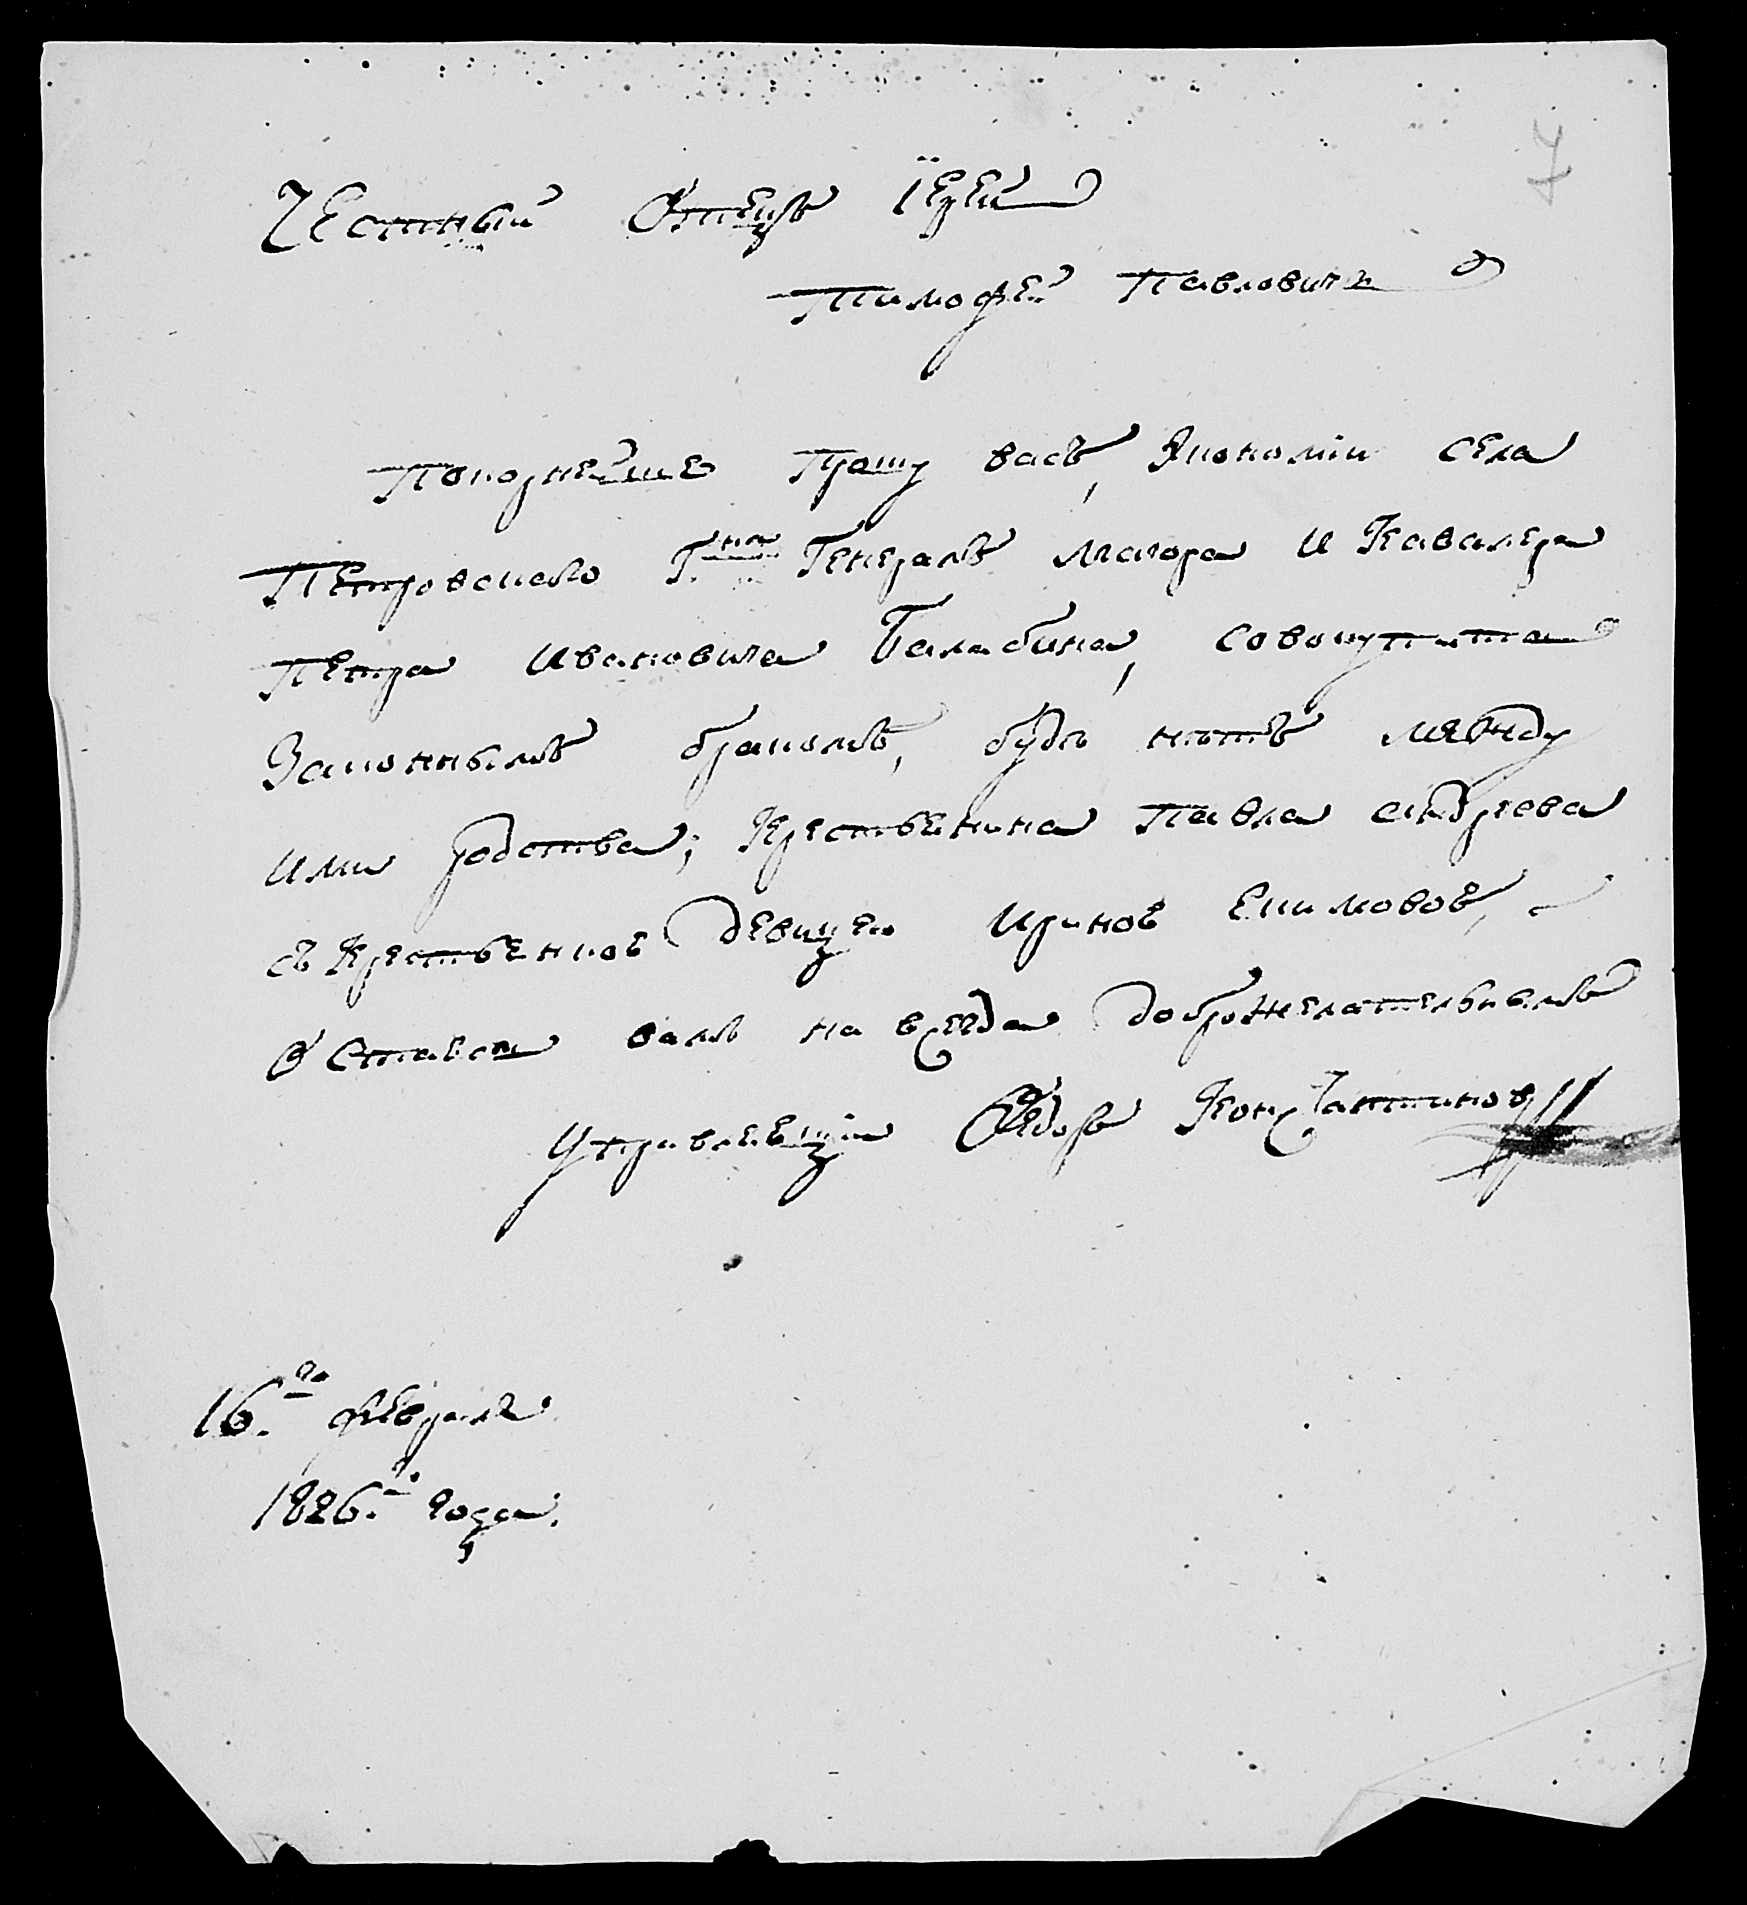 7
Честный Отецъ Іерей
Тимофей Павловичь
Покорнейше прошу васъ, Экономіи села
Петровскаго Г.на Генералъ Маіора И Кавалера
Петра Ивановича Балабина, совокупита
Законнымъ бракомъ, будь нетъ между
ими родства; Крестьенина Павла андреева
съ Крестьенкой девицею Ириной Екимовой,
Остаюсь вамъ на всегда доброжелательнымъ
Управляющіи Федоръ Константиновъ
16.го февраля
1826.го года.